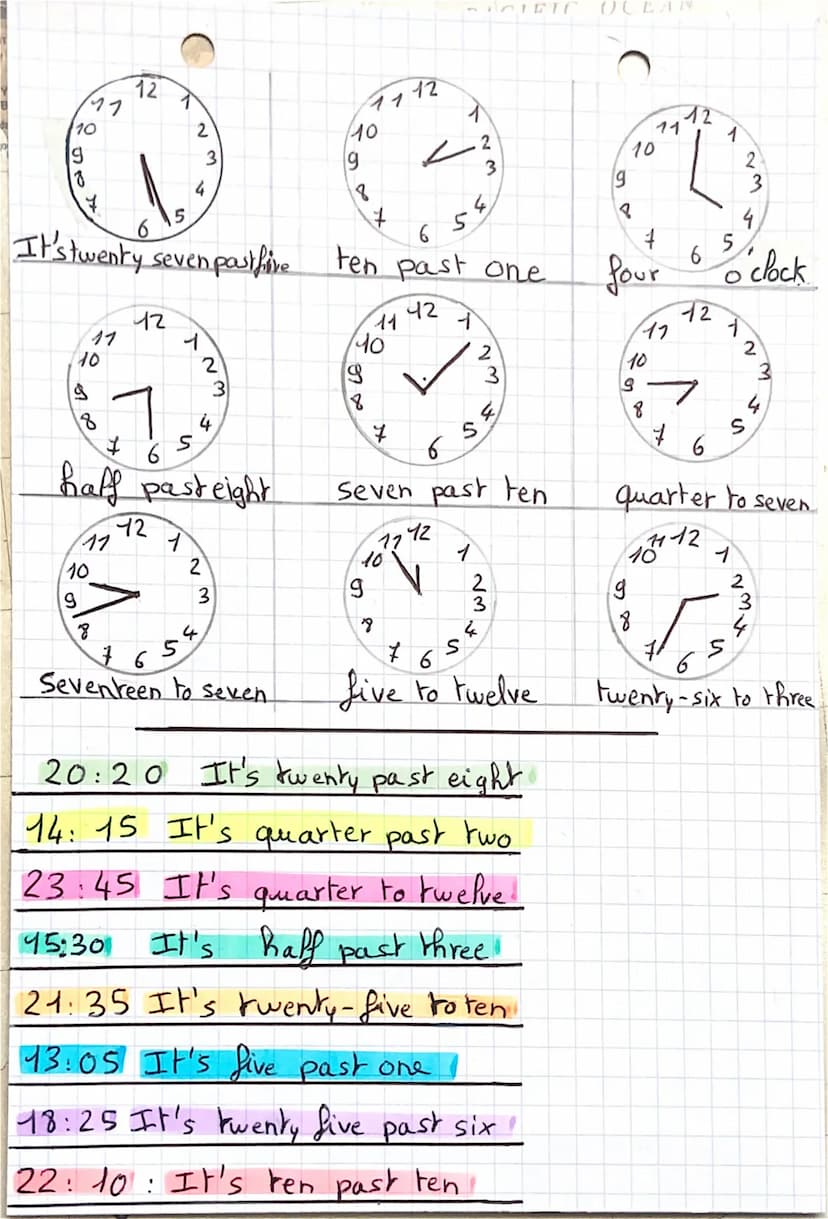 PACIFIC OCEAN
12
11 1
10 2
9 3
8 4
7 5
6
It's twenty seven past five
12
11 1
10 2
9 3
8 4
7 5
6
ten past one
12
11 1
10 2
9 3
8 4
7 5
6
four o'clock
12
11 1
10 2
9 3
8 4
7 5
6
half past eight
12
11 1
10 2
9 3
8 4
7 5
6
seven past ten
12
11 1
10 2
9 3
8 4
7 5
6
quarter to seven
12
11 1
10 2
9 3
8 4
7 5
6
Seventeen to seven
12
11 1
10 2
9 3
8 4
7 5
6
five to twelve
12
11 1
10 2
9 3
8 4
7 5
6
twenty-six to three
20:20 It's twenty past eight
14:15 It's quarter past two
23:45 It's quarter to twelve
15:30 It's half past three
21:35 It's twenty-five to ten
13:05 It's five past one
18:25 It's twenty five past six
22:10: It's ten past ten